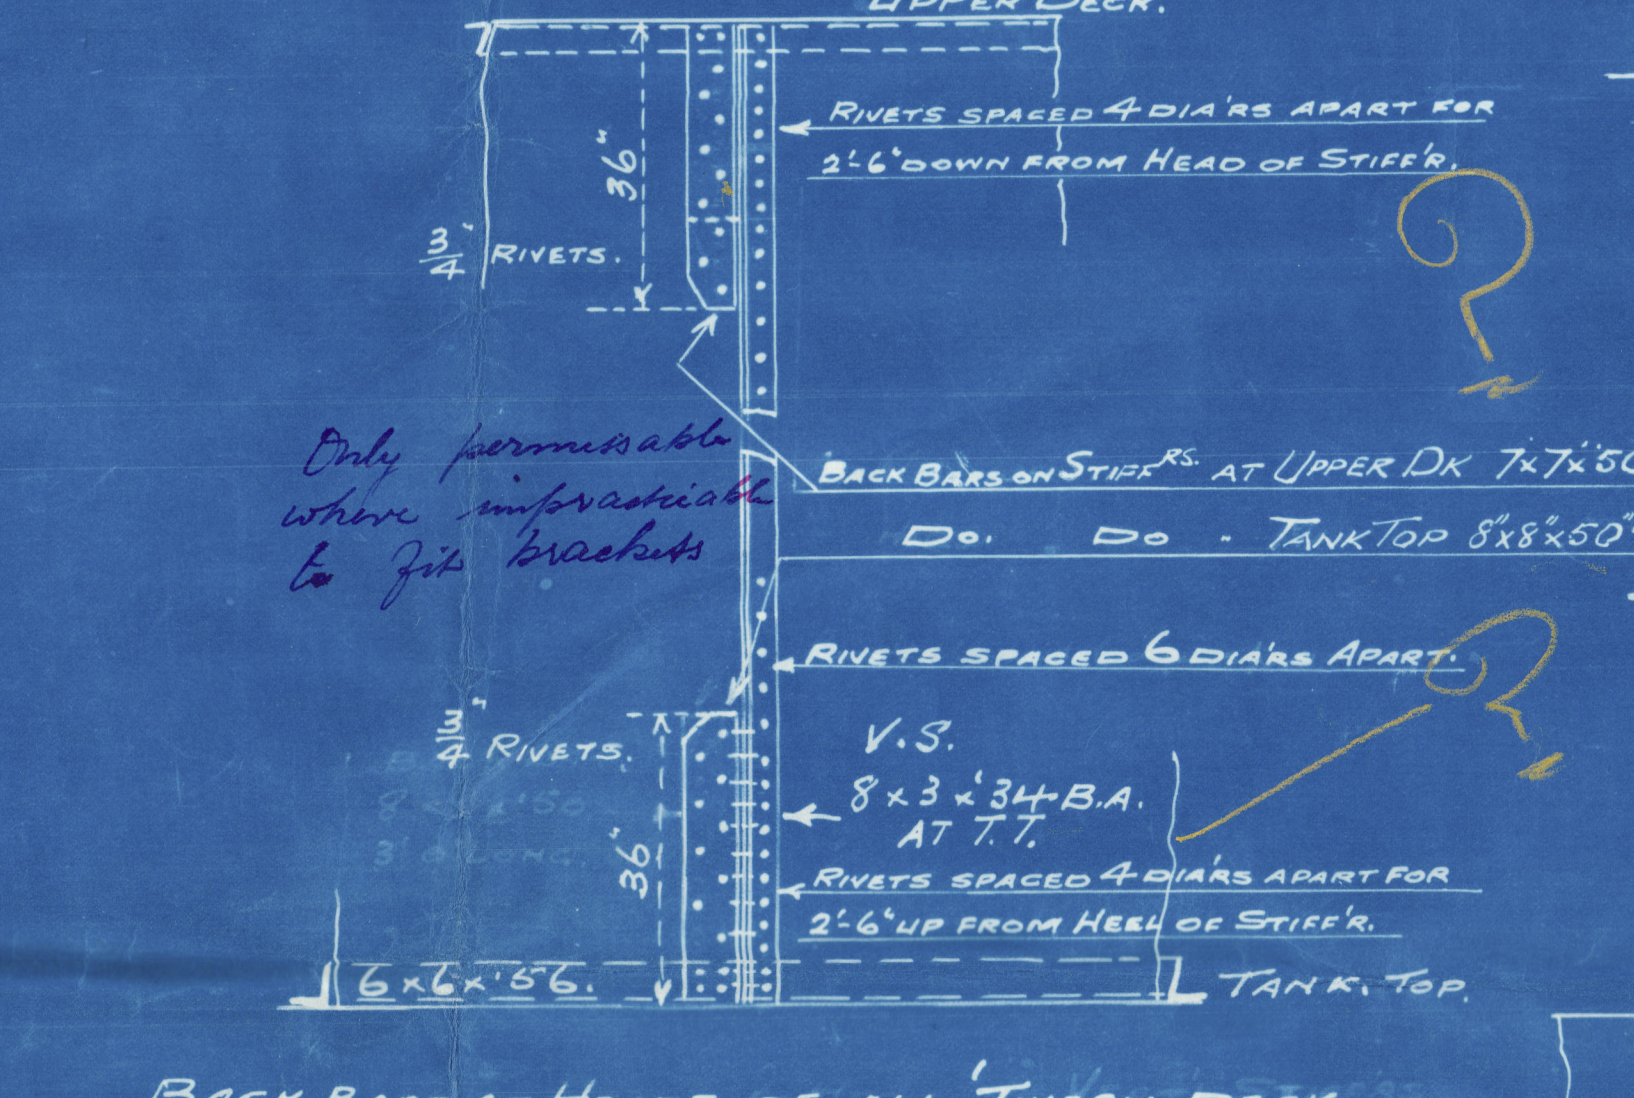 UPPER DECK.
RIVETS SPACED 4 DIA'RS APART FOR
2'-6" DOWN FROM HEAD OF STIFF'R.
36"
3/4" RIVETS.
?
Only permissable
where impractiable
to fit brackets
BACK BARS ON STIFFRS. AT UPPER DK 7"x7"x'50
Do. Do - TANK TOP 8"x8"x50"
RIVETS SPACED 6 DIA'RS APART.
?
3/4" RIVETS.
V.S.
8 x 3 x '34 B.A.
AT T.T.
36"
RIVETS SPACED 4 DIA'RS APART FOR
2'-6" UP FROM HEEL OF STIFF'R.
6 x 6 x '56.
TANK. TOP.